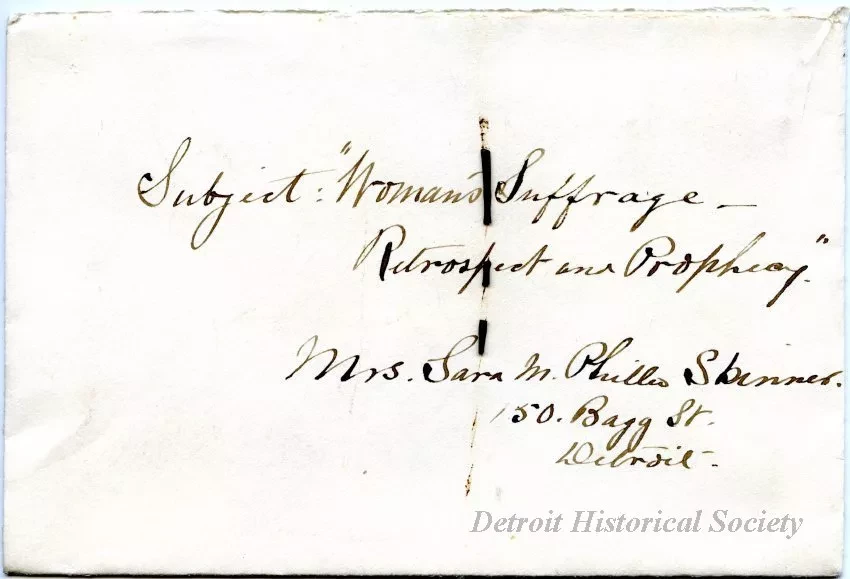 Subject: "Woman's Suffrage –
Retrospect and Prophecy."
Mrs. Sara M. Philleo Skinner.
150. Bagg St.
Detroit.
Detroit Historical Society